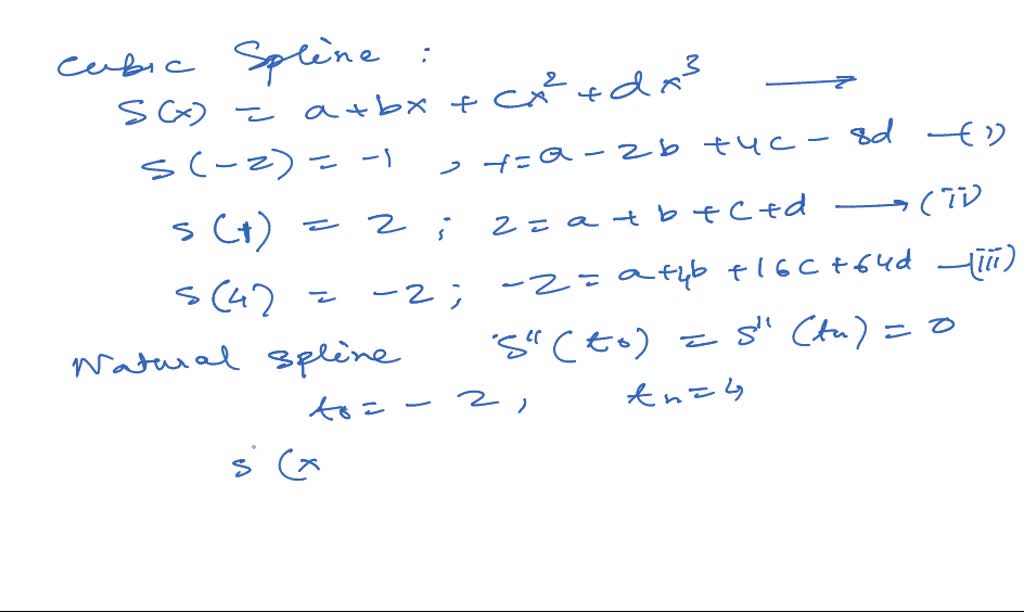 Cubic Spline :
S(x) = a+bx + cx² + dx³ →
S(-2) = -1 , -1 = a - 2b + 4c - 8d —(i)
S(1) = 2 ; 2 = a + b + c + d → (ii)
S(4) = -2 ; -2 = a+4b +16c +64d —(iii)
Natural spline S"(t₀) = S"(tₙ) = 0
t₀ = - 2 , tₙ = 4
S (x